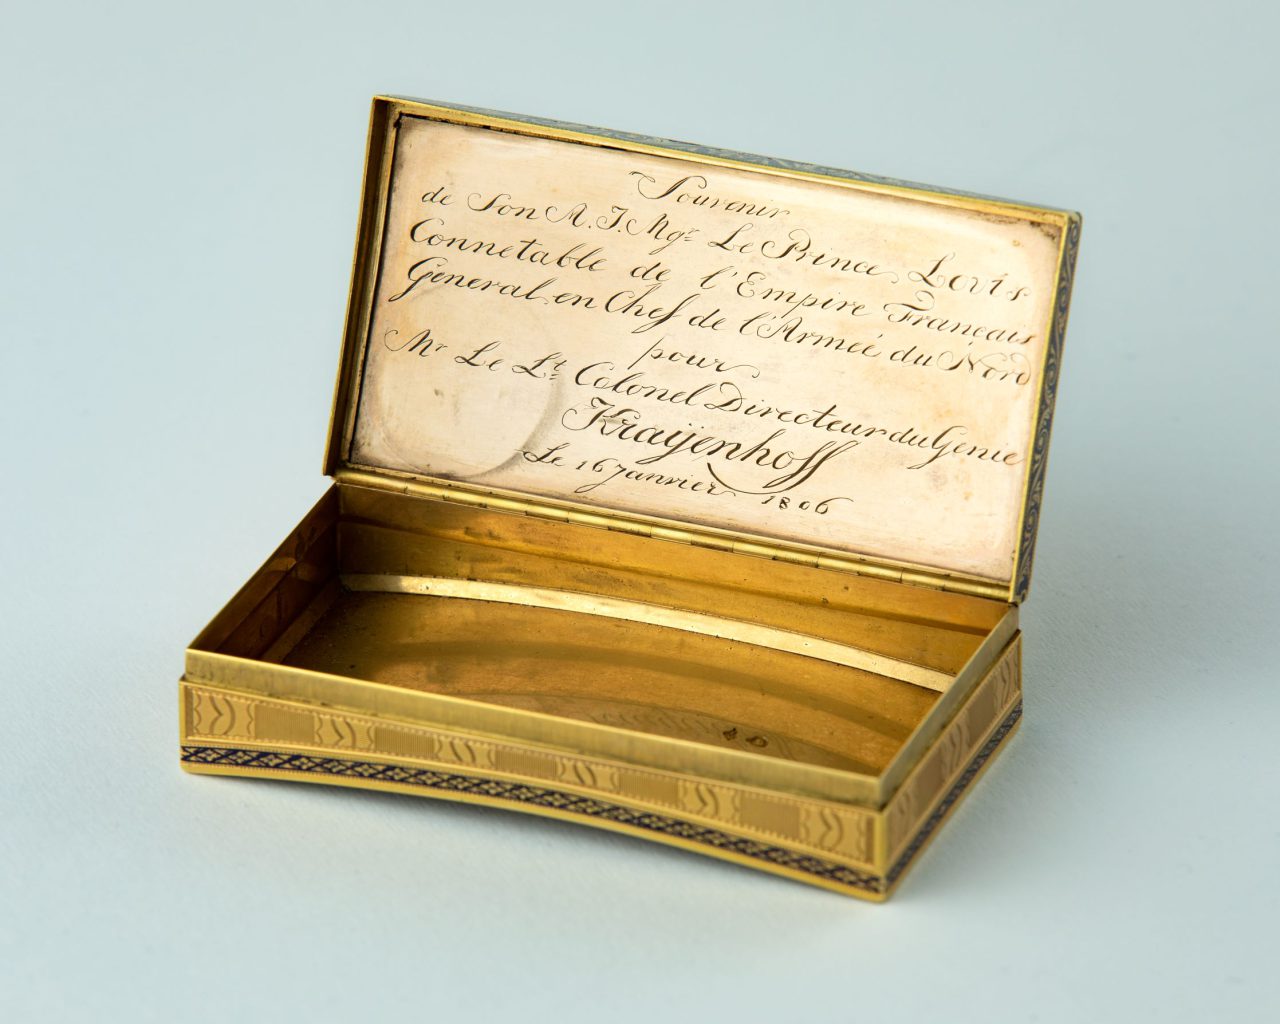 Souvenir
de Son A. I. Mgr Le Prince Lovis
Connetable de l'Empire Français
General en Chef de l'Armeé du Nord
pour
Mr Le Lt Colonel Directeur du Genie
Kraijenhoff
Le 16 Janvier 1806